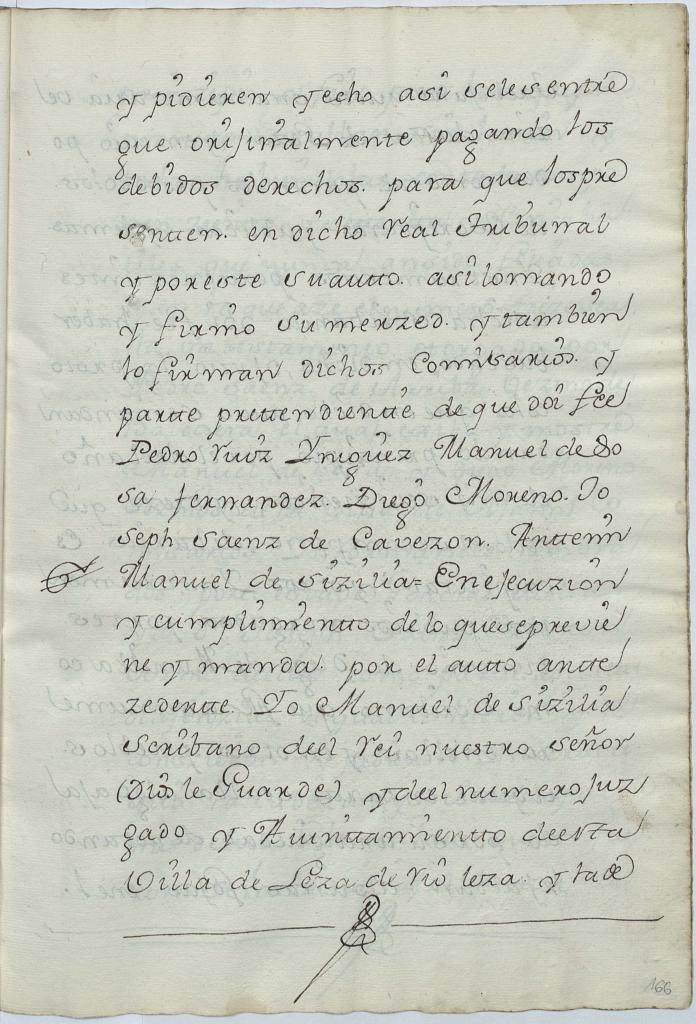 y pidieren y echo asi seles entre
gue orijinalmente pagando los
debidos derechos. para que lospre
sentten. en dicho Real Tribunal
y poreste suautto. asilomando
y firmo sumerzed. y tambien
lo firman dichos Comisarios. y
partte prettendientte de que doi fee
Pedro Ruiz Yniguez Manuel de So
sa fernandez. Diego Moreno. Jo
seph Saenz de Cavezon. Anttemi
Manuel de Sizilia = En ejecuzion
y cumplimientto de lo queseprevie
ne y manda. por el autto antte
zedentte. Yo Manuel de Sizilia
Scribano deel Rei nuestro señor
(Dios le Guarde) y deel numero Juz
gado y Aiunttamientto deesta
Villa de Leza de rio leza. y la de
166